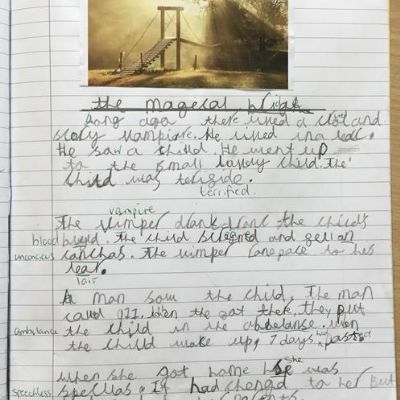 the magecal bridge
Long ago there lived a clol and
scary vampire. He lived in a lair.
He saw a child. He went up
to the small lonly child. the
child was teriside.
terrified.
vampire
The vimper drank the child's
blood . the child screamed and
unconcious conchas. The vimper ran to his
lear.
lair
A man saw the child. The man
called 911. When the got there, they put
ambulance the child in the abelanse. when
the child wake up, 7 days past
she
when she got home she was
speechless spechlas. It had chengd to her But
parents.